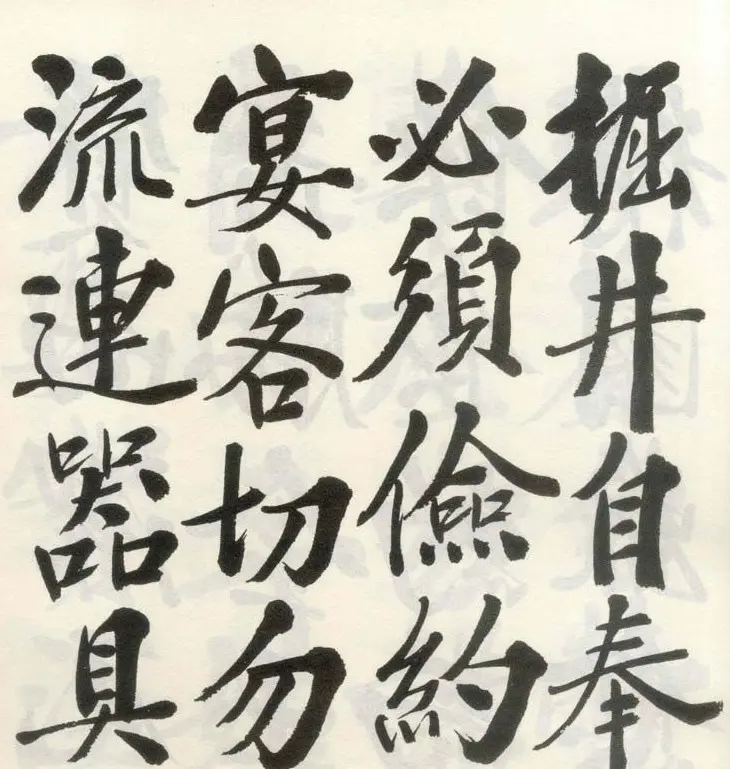 掘井自奉
必須儉約
宴客切勿
流連器具